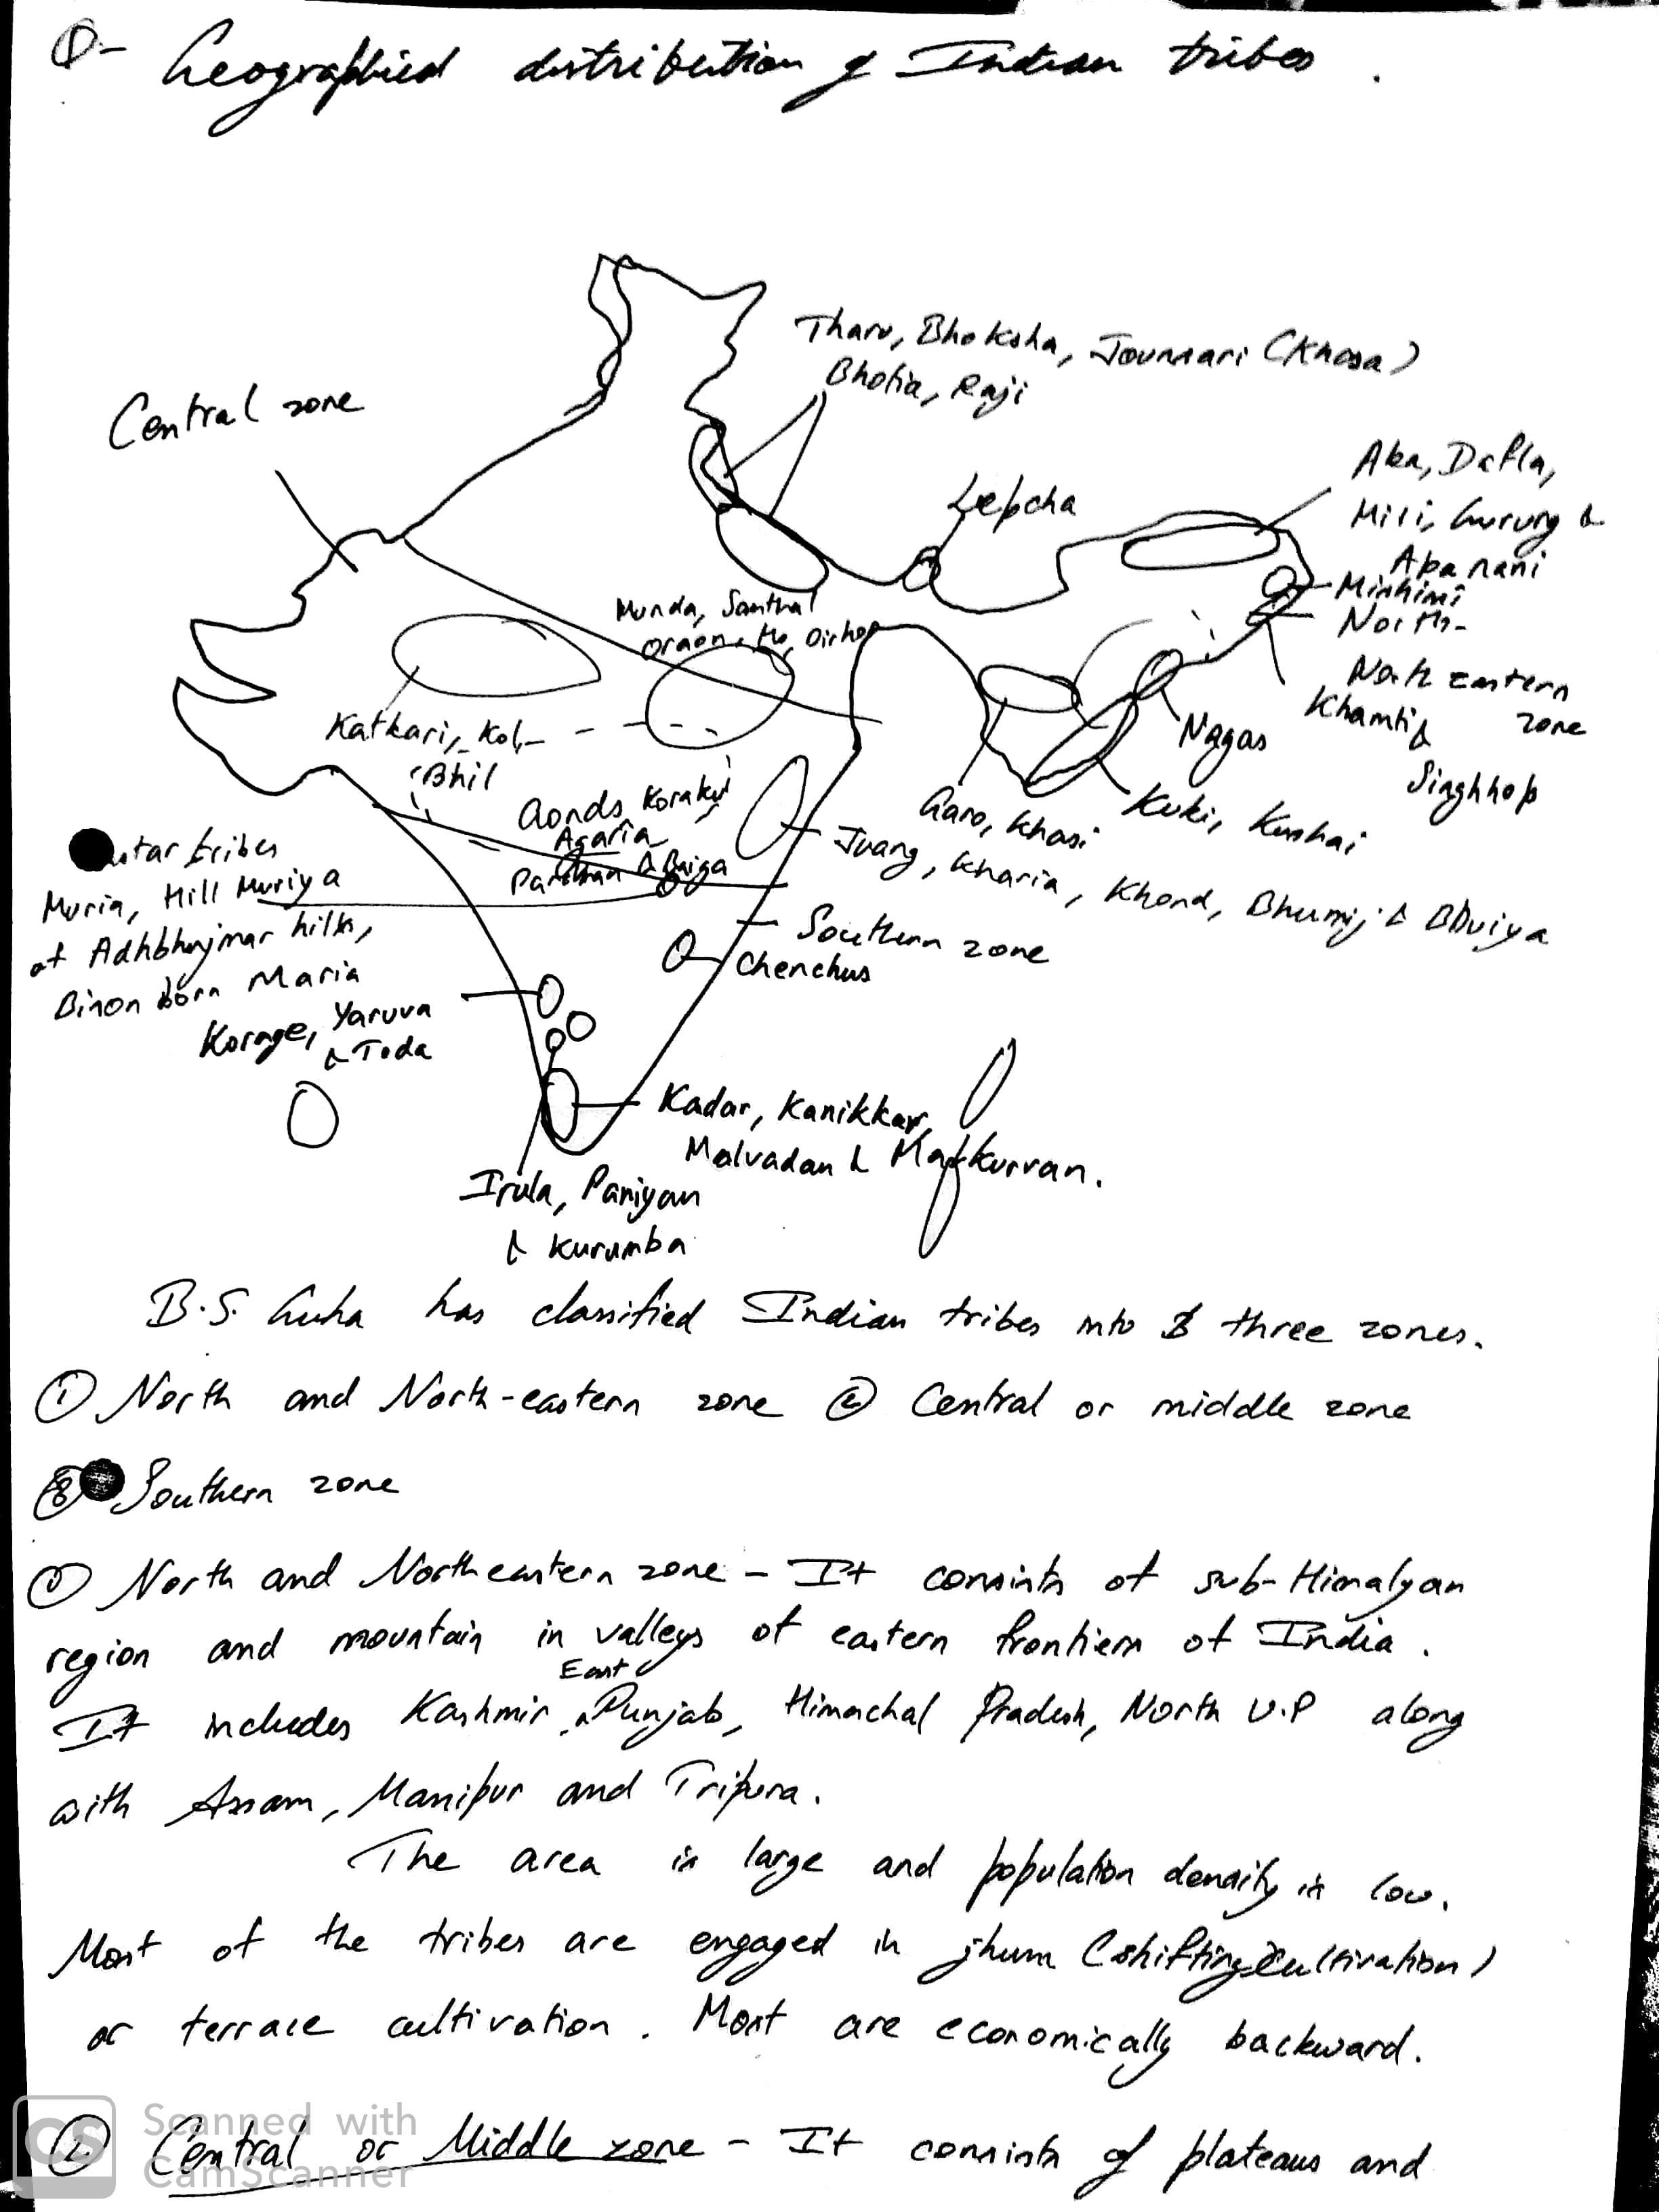 Q- Geographical distribution of Indian tribes.
Tharu, Bhoksha, Jounsari (Khasa)
Bhotia, Raji
Central zone
Lepcha
Aka, Dafla,
Miri, Gurung &
Apa nani
Mishimi
North-
North Eastern
zone
Khamti &
Singhhop
Munda, Santhal
Oraon, Ho, Birhor
Nagas
Katkari, Kol,
Bhil
Garo, Khasi
Kuki, Kushai
Gonds, Koraku
Agaria
Pardhan & Baiga
Juang, Kharia, Khond, Bhumij & Bhuiya
tribes
Muria, Hill Muriya
of Adhbhujmar hills,
Bison born Maria
Southern zone
Chenchus
Korage, Yaruva
& Toda
Kadar, Kanikkar,
Malvadan &
Irula, Paniyan
& Kurumba
B.S. Guha has classified Indian tribes into three zones.
① North and North-eastern zone ② Central or middle zone
③ Southern zone
① North and Northeastern zone - It consists of sub-Himalyan
region and mountain in valleys of eastern frontiers of India.
It includes Kashmir, East Punjab, Himachal Pradesh, North U.P along
with Assam, Manipur and Tripura.
The area is large and population density is low.
Most of the tribes are engaged in jhum (shifting cultivation)
or terrace cultivation. Most are economically backward.
② Central or Middle zone - It consists of plateaus and
CS Scanned with
CamScanner